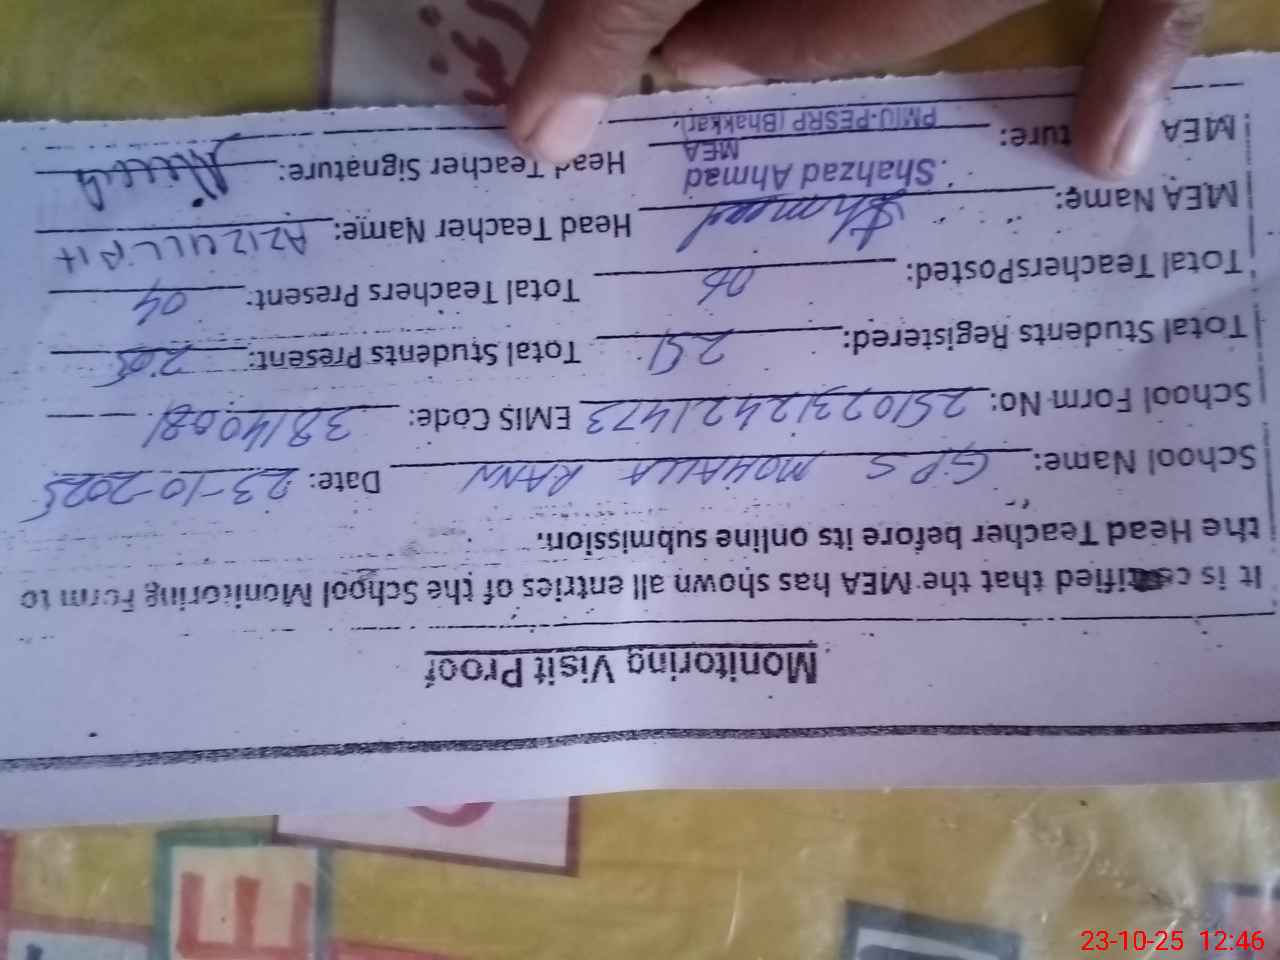 Monitoring Visit Proof
It is certified that the MEA has shown all entries of the School Monitoring Form to
the Head Teacher before its online submission.
School Name: G.P.S MOHALLA RANN Date: 23-10-2025
School Form No: 2510231242 1473 EMIS Code: 38140081
Total Students Registered: Total Students Present: 205
Total TeachersPosted: 06 Total Teachers Present: 04
MEA Name: Head Teacher Name: AZIZ ULLAH
Shahzad Ahmad
MEA
MEA ture: Head Teacher Signature:
PMIU-PESRP (Bhakkar).
E
23-10-25 12:46